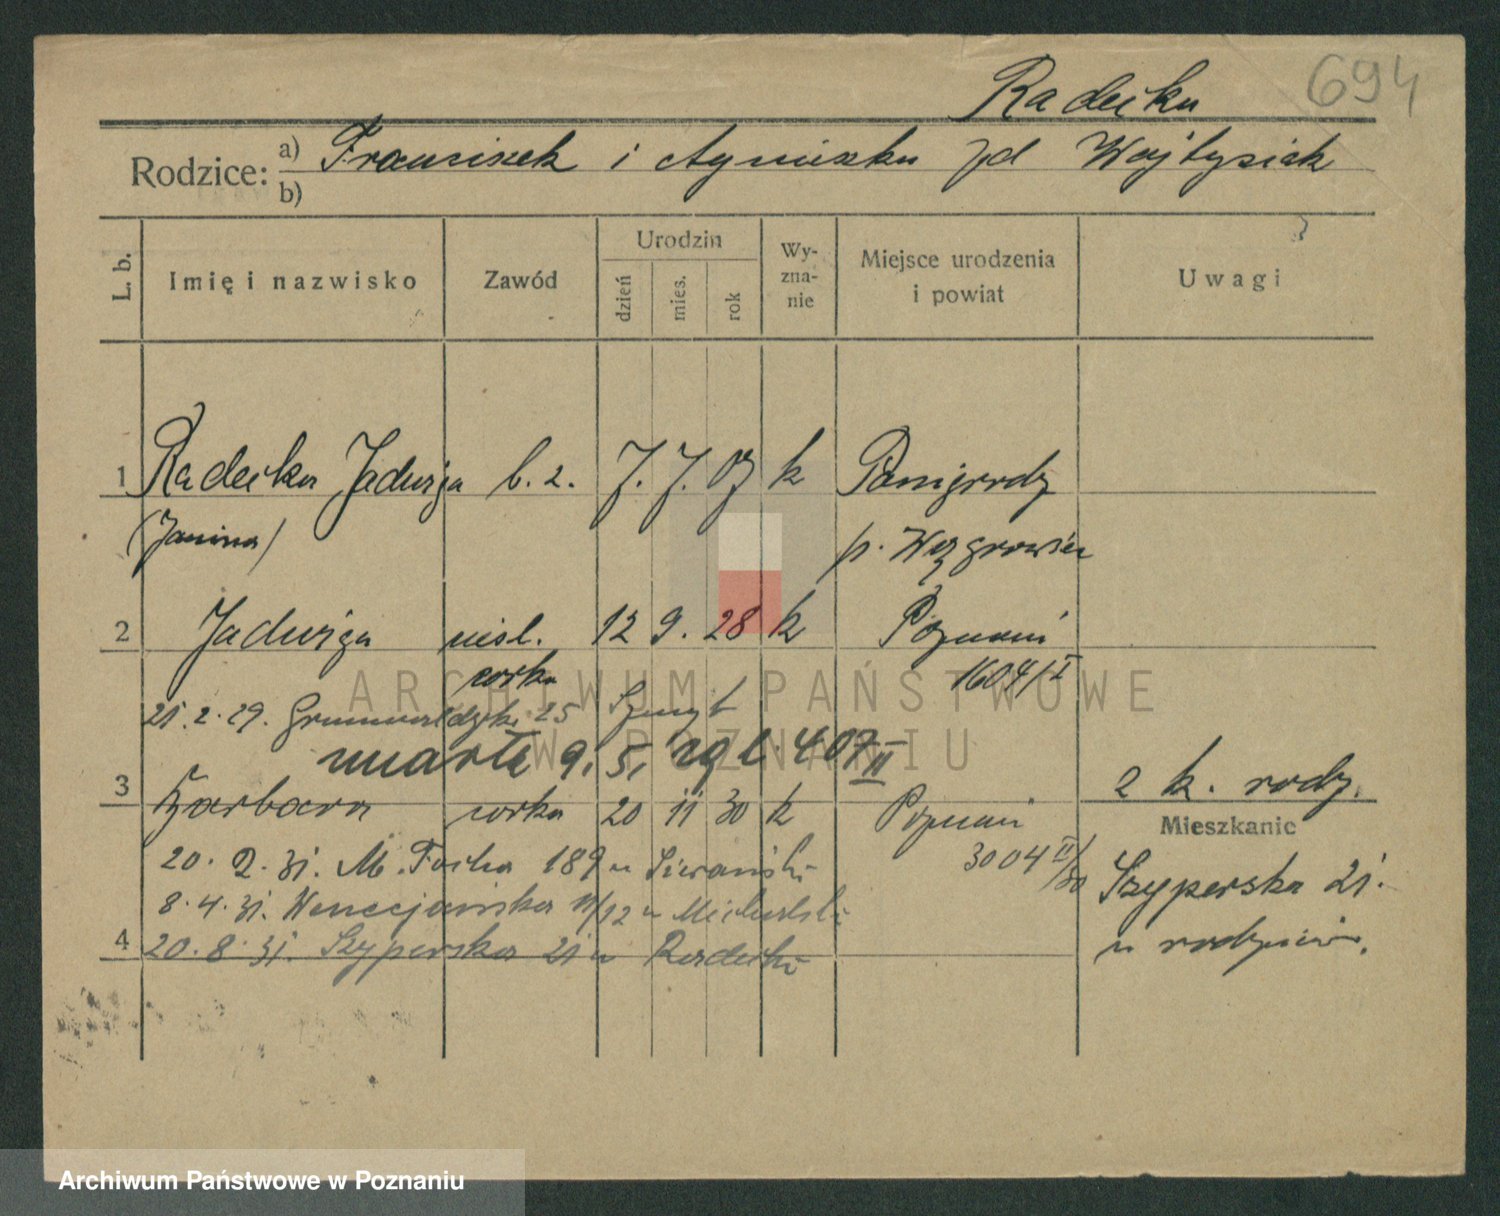 694
Radecka
Rodzice: a) Franciszek i Agnieszka zd Wojtysiak
b)
L. b. Imię i nazwisko Zawód Urodzin dzień mies. rok Wyznanie Miejsce urodzenia i powiat Uwagi
1 Radecka Jadwiga b. z. 7. 7. 07 k Panigrodz
(Janina) p. Wągrowiec
2 Jadwiga nieśl. 12 9. 28 k Poznań
córka 1604/I
21.2.29. Grunwaldzka 25 Szmyt
zmarła 9. 5. zgł. 407 II
3 Barbara córka 20 11 30 k Poznań
3004 II/30
2 k. rodz.
Mieszkanie
20. 2. 31. M. Focha 189 u Siwański
Szyperska 21.
8. 4. 31. Wenecjańska 11/12 u Michalski
u rodziców.
4 20. 8. 31. Szyperska 21 u Radecki
ARCHIWUM PAŃSTWOWE
W POZNANIU
Archiwum Państwowe w Poznaniu